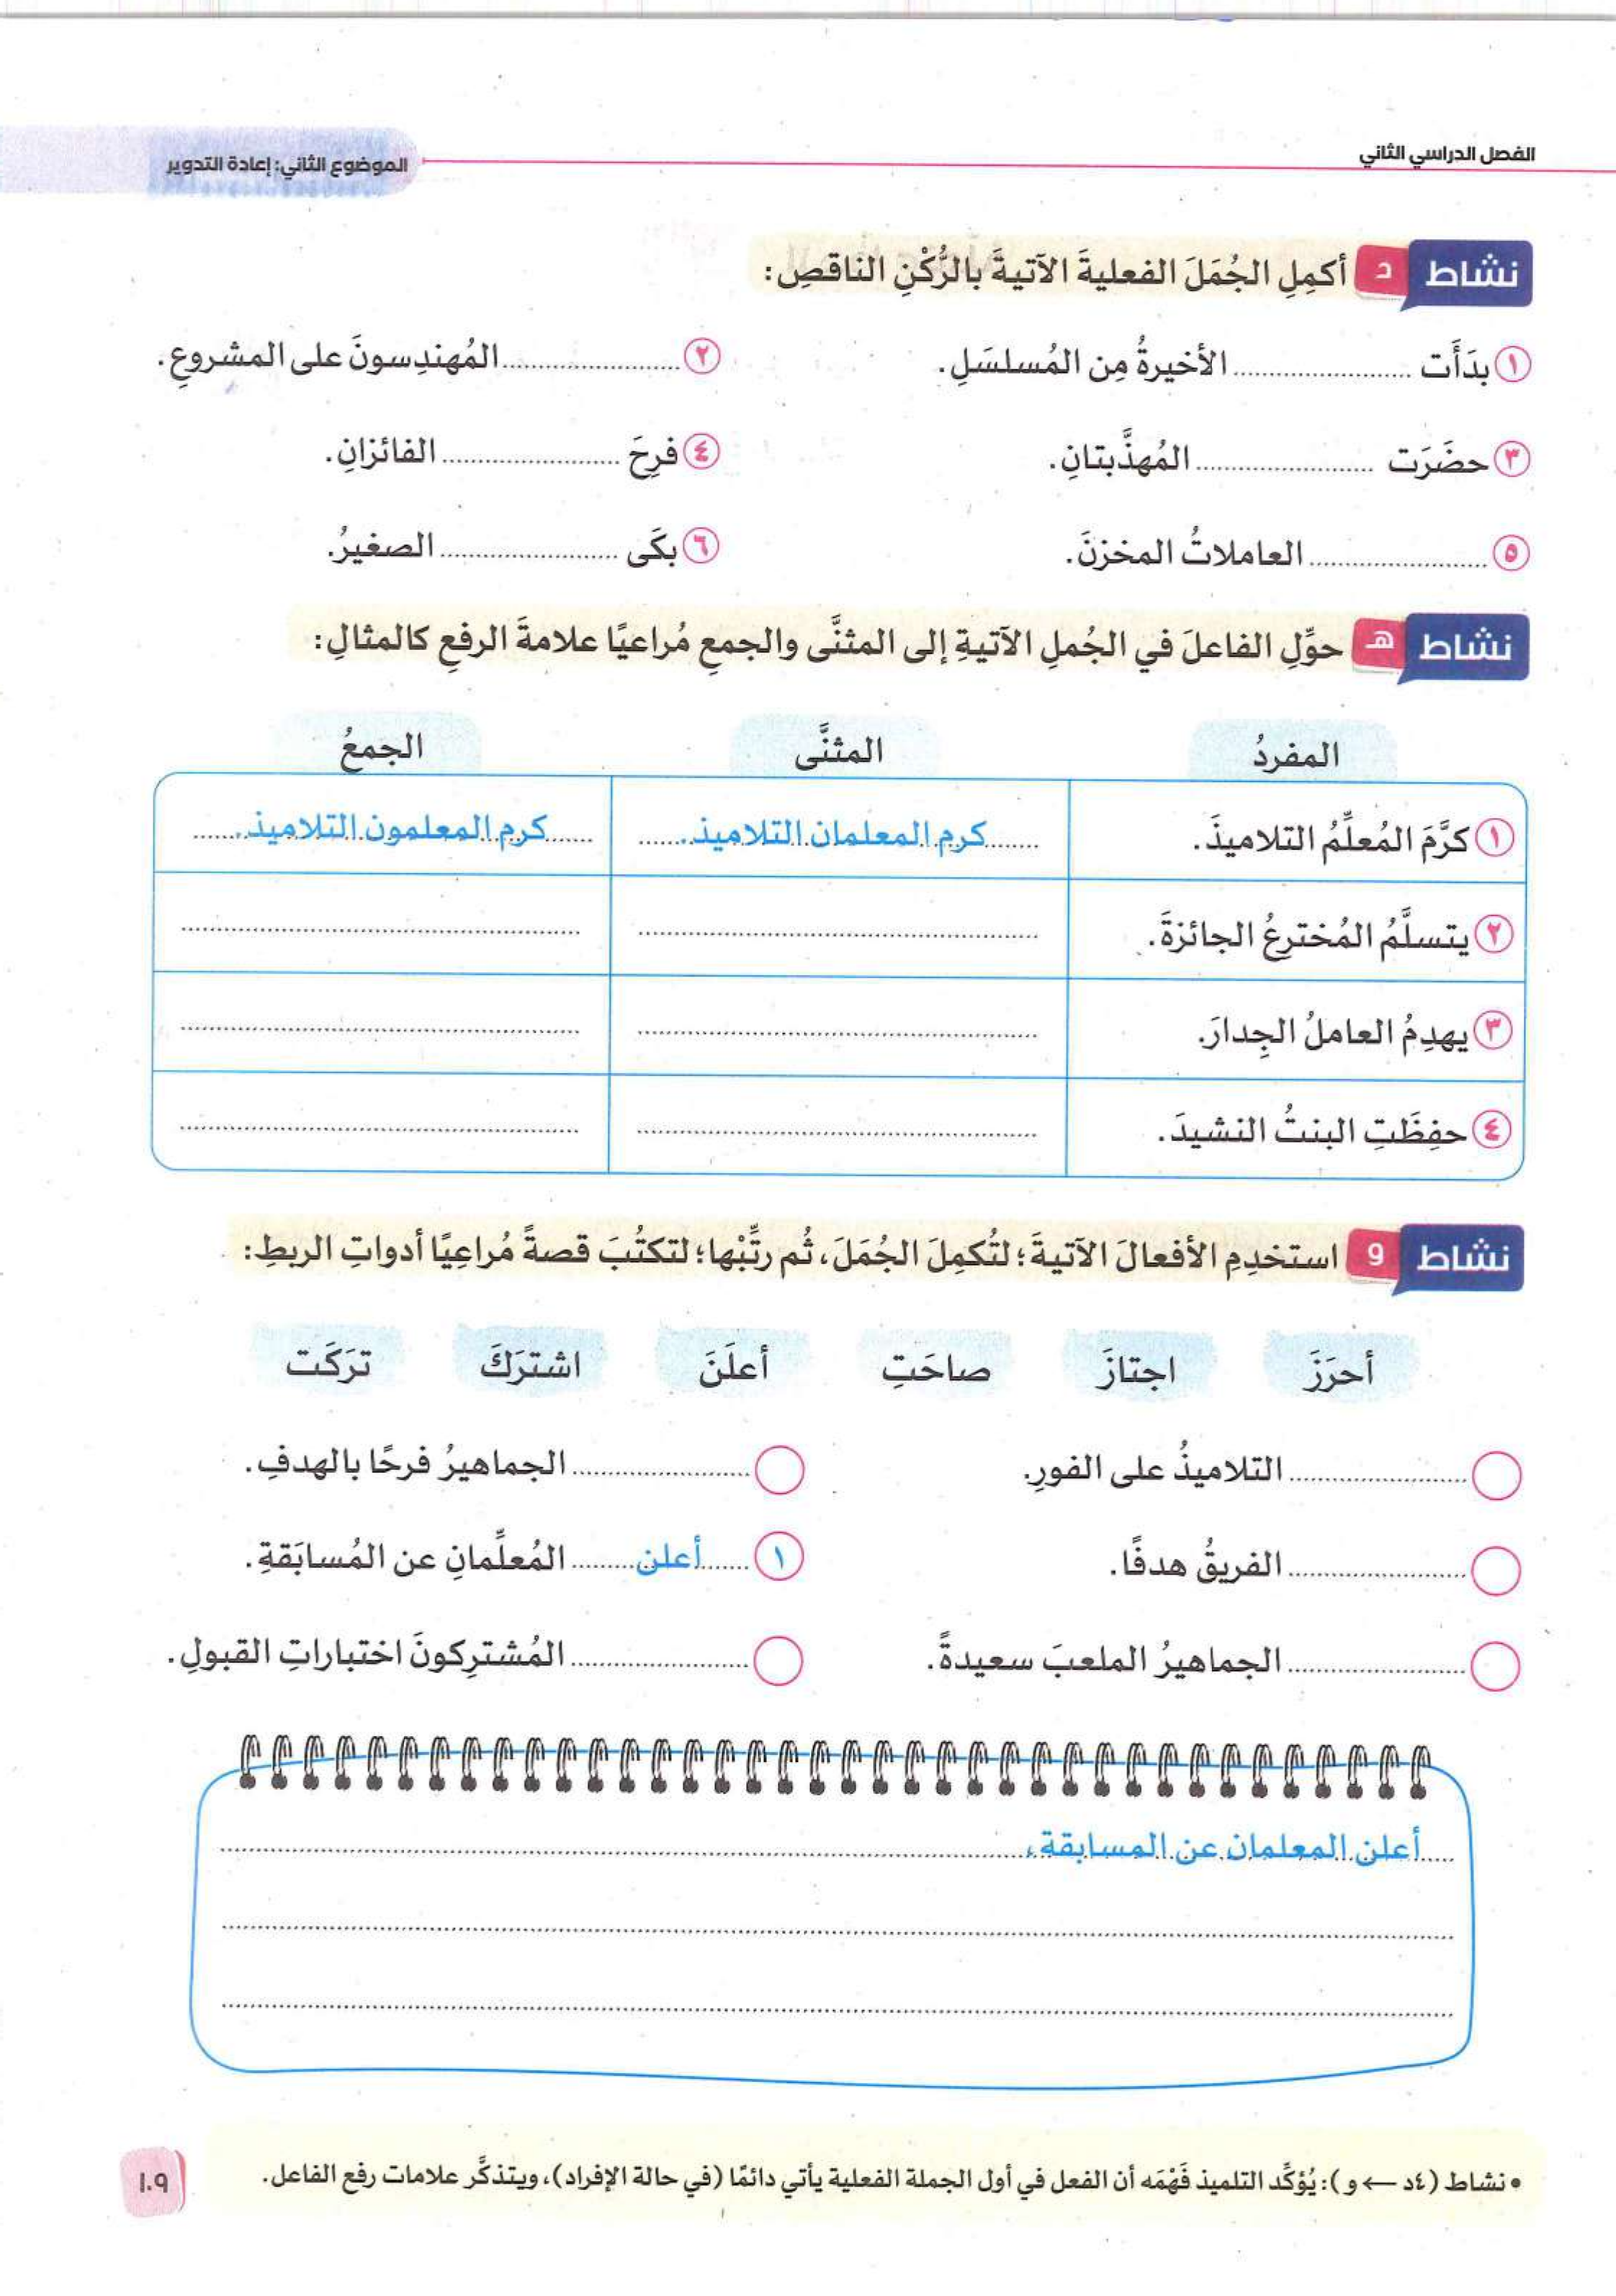 الفصل الدراسي الثاني
الموضوع الثاني: إعادة التدوير
نشاط د أكمِلِ الجُمَلَ الفعليةَ الآتيةَ بالرُّكْنِ الناقصِ:
١ بدَأَت ........................ الأخيرةُ مِن المُسلسَلِ.
٢ ........................ المُهندِسونَ على المشروعِ.
٣ حضَرَت ........................ المُهذَّبتانِ.
٤ فرِحَ ........................ الفائزانِ.
٥ ........................ العاملاتُ المخزنَ.
٦ بكَى ........................ الصغيرُ.
نشاط هـ حوِّلِ الفاعلَ في الجُملِ الآتيةِ إلى المثنَّى والجمعِ مُراعيًا علامةَ الرفعِ كالمثالِ:
المفردُ المثنَّى الجمعُ
١ كرَّمَ المُعلِّمُ التلاميذَ. كرم المعلمان التلاميذ. كرم المعلمون التلاميذ.
٢ يتسلَّمُ المُخترِعُ الجائزةَ.
٣ يهدِمُ العاملُ الجِدارَ.
٤ حفِظَتِ البنتُ النشيدَ.
نشاط و استخدِمِ الأفعالَ الآتيةَ؛ لتُكمِلَ الجُمَلَ، ثُم رتِّبْها؛ لتكتُبَ قصةً مُراعِيًا أدواتِ الربطِ:
أحرَزَ اجتازَ صاحَتِ أعلَنَ اشترَكَ تركَت
........................ التلاميذُ على الفورِ.
........................ الجماهيرُ فرحًا بالهدفِ.
........................ الفريقُ هدفًا.
١ أعلن المُعلِّمانِ عن المُسابَقةِ.
........................ الجماهيرُ الملعبَ سعيدةً.
........................ المُشترِكونَ اختباراتِ القبولِ.
أعلن المعلمان عن المسابقة،
• نشاط (٤د ← و): يُؤكِّد التلميذ فَهْمَه أن الفعل في أول الجملة الفعلية يأتي دائمًا (في حالة الإفراد)، ويتذكَّر علامات رفع الفاعل.
١٠٩